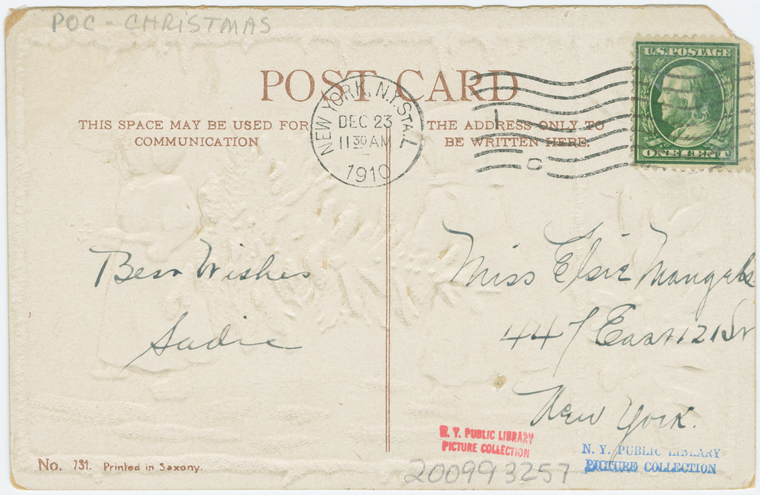 POC - CHRISTMAS
POST CARD
THIS SPACE MAY BE USED FOR
COMMUNICATION
THE ADDRESS ONLY TO
BE WRITTEN HERE.
NEW YORK, N.Y. STA. L
DEC 23
11 30 AM
1910
L
C
U.S. POSTAGE
ONE CENT
Best Wishes
Sadie
Miss Elsie Mangels
447 East 121 St
New York.
N. Y. PUBLIC LIBRARY
PICTURE COLLECTION
N. Y. PUBLIC LIBRARY
PICTURE COLLECTION
200993257
No. 731. Printed in Saxony.